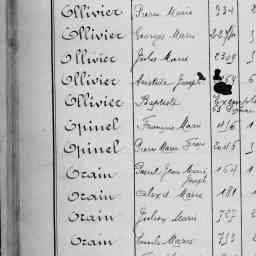 Ollivier Pierre Marie 334
Ollivier Georges Marie
Ollivier Jules Marie 2309
Ollivier Aristide Joseph
Ollivier Baptiste
Opinel François Marie 116
Opinel Pierre Marie 2045
Orain Paul Jean Marie 164
Joseph
Orain Alexis Marie 181
Orain Jules Marie 727
Orain Emile Marie 733